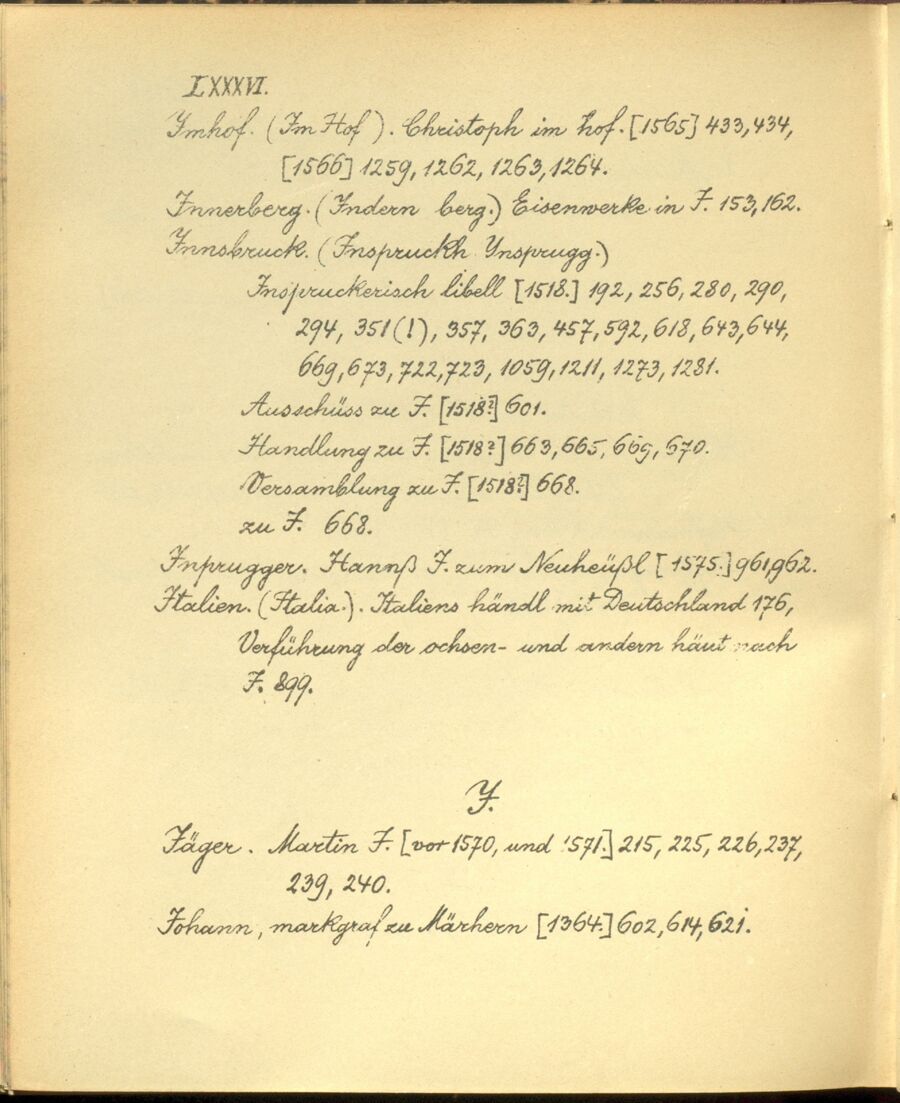 LXXXVI.
Ymhof. (Im Hof). Christoph im hof. [1565] 433, 434,
[1566] 1259, 1262, 1263, 1264.
Innerberg. (Indern berg.) Eisenwerke in I. 153, 162.
Innsbruck. (Inspruckh Ynsprugg.)
Inspruckerisch libell [1518.] 192, 256, 280, 290,
294, 351(!), 357, 363, 457, 592, 618, 643, 644,
669, 673, 722, 723, 1059, 1211, 1273, 1281.
Ausschüss zu I. [1518?] 601.
Handlung zu I. [1518?] 663, 665, 669, 670.
Versamblung zu I. [1518?] 668.
zu I. 668.
Inprugger. Hannß I. zum Neuheüßl [1575.] 961, 962.
Italien. (Italia.). Italiens händl mit Deutschland 176,
Verführung der ochsen- und andern häut nach
I. 899.
J.
Jäger. Martin J. [vor 1570, und 1571.] 215, 225, 226, 237,
239, 240.
Johann, markgraf zu Märhern [1364.] 602, 614, 621.